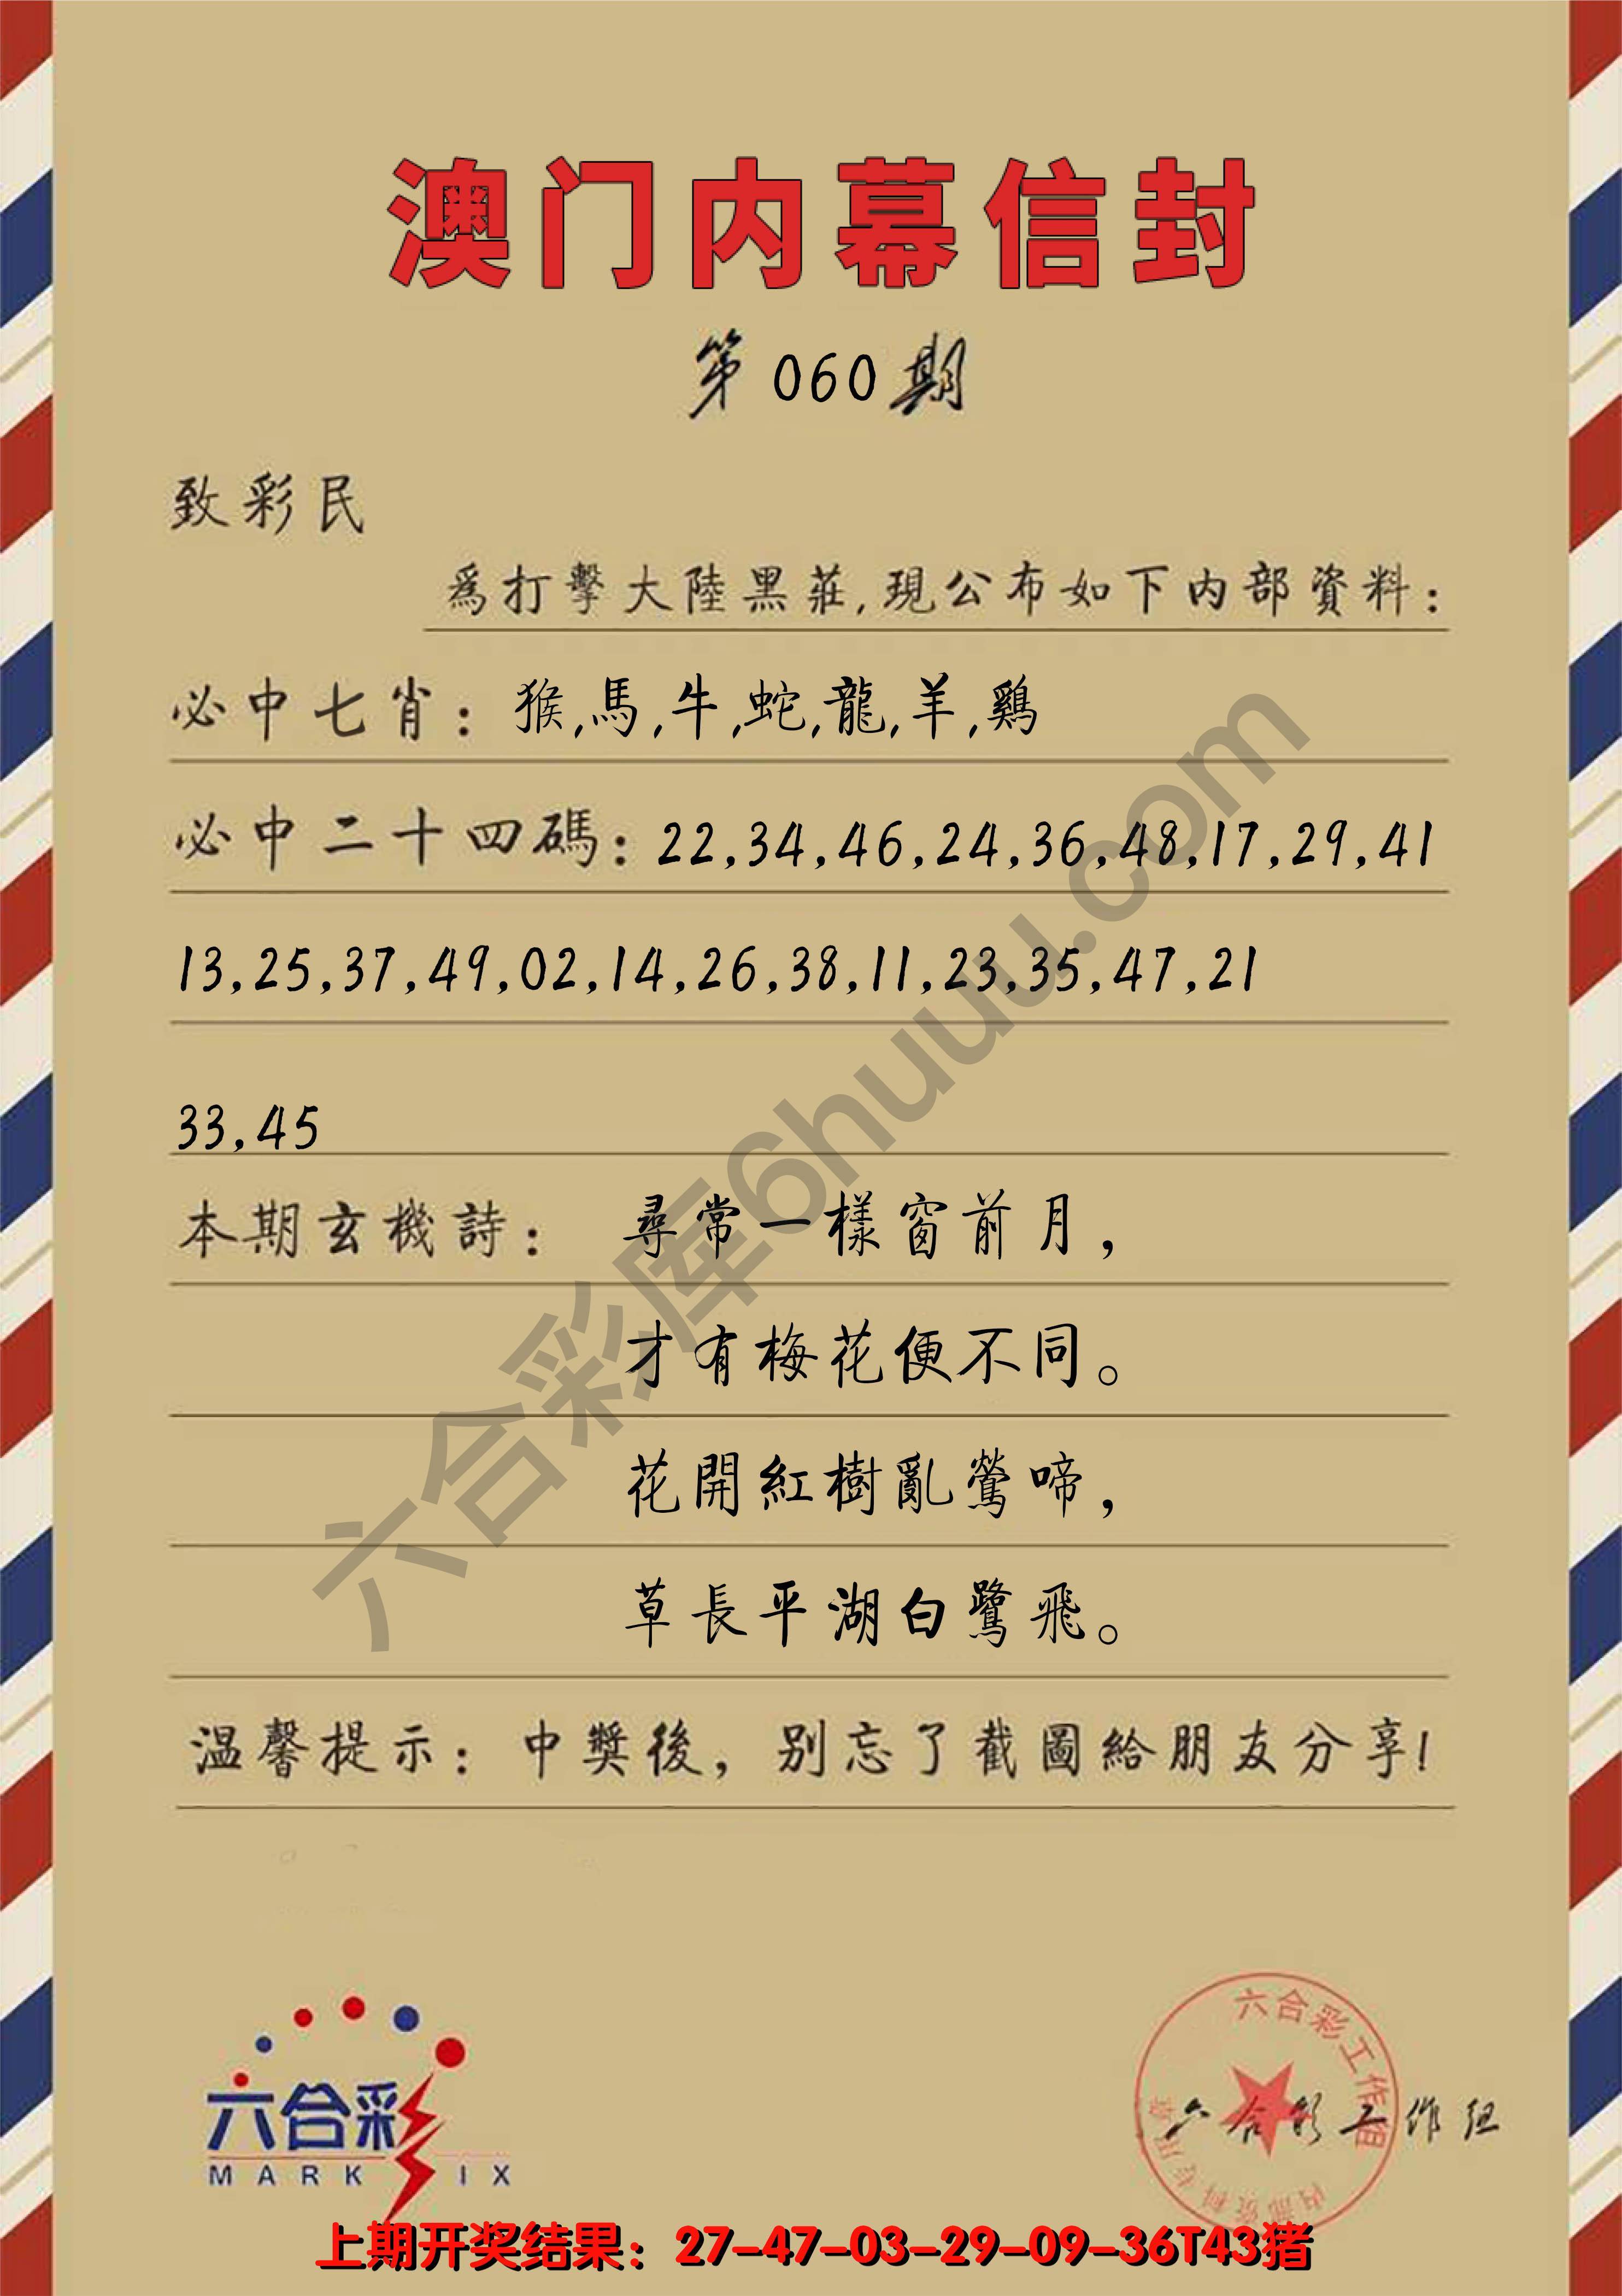 澳门内幕信封
第060期
致彩民
爲打擊大陸黑莊,現公布如下内部資料:
必中七肖: 猴,馬,牛,蛇,龍,羊,鷄
必中二十四碼: 22,34,46,24,36,48,17,29,41
13,25,37,49,02,14,26,38,11,23,35,47,21
33,45
本期玄機詩: 尋常一樣窗前月,
才有梅花便不同。
花開紅樹亂鶯啼,
草長平湖白鷺飛。
温馨提示: 中獎後, 别忘了截圖給朋友分享!
六合彩库6huuu.com
六合彩
MARK IX
六合彩工作组
内部资料专用章
六合彩工作组
上期开奖结果: 27-47-03-29-09-36T43猪